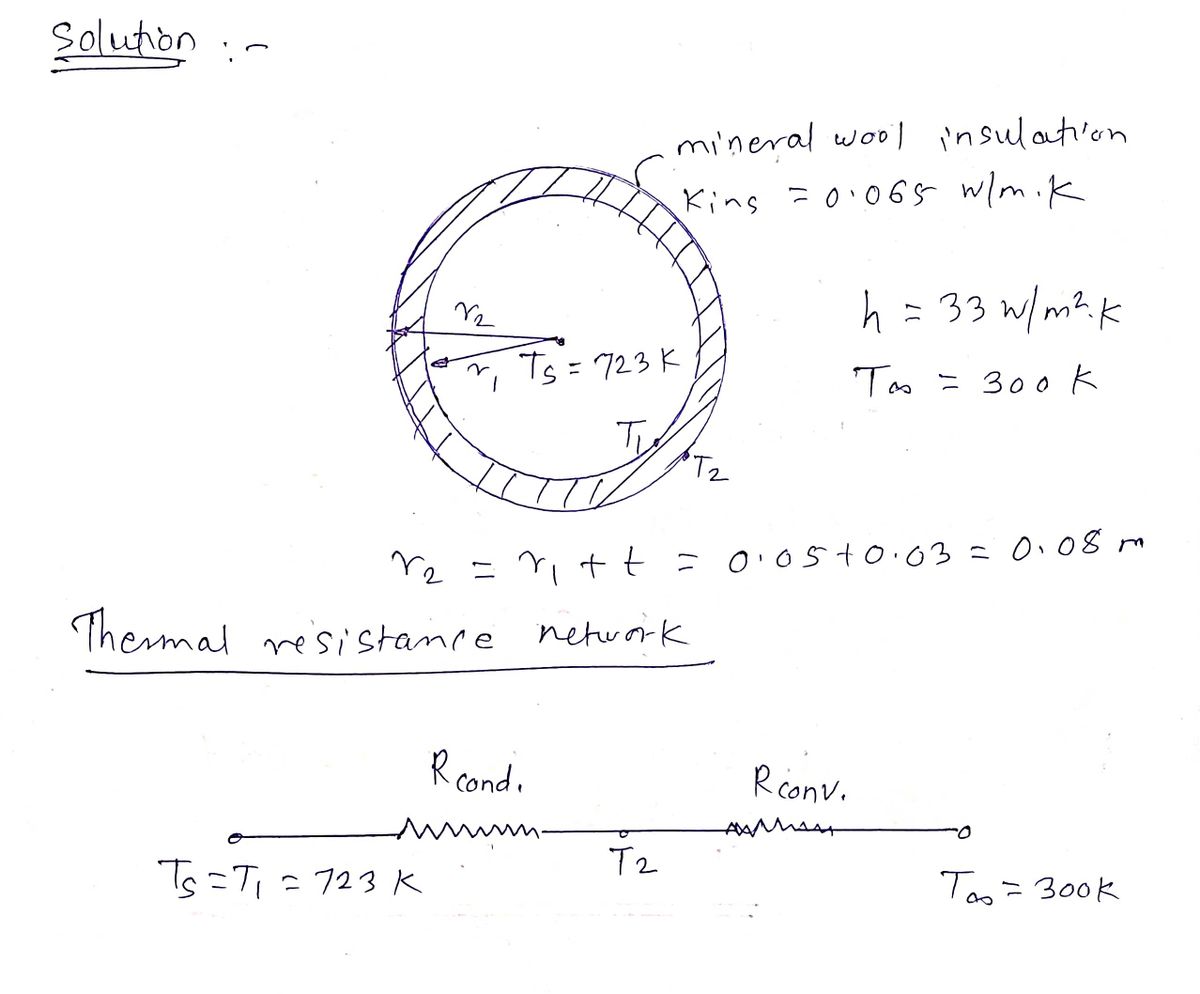 Solution :-
mineral wool insulation
Kins = 0.065 W/m.K
h = 33 W/m².K
T∞ = 300 K
r₂
r₁ Ts = 723 K
T₁
T₂
r₂ = r₁ + t = 0.05+0.03 = 0.08 m
Thermal resistance network
Rcond.
Rconv.
Ts = T₁ = 723 K
T₂
T∞ = 300K